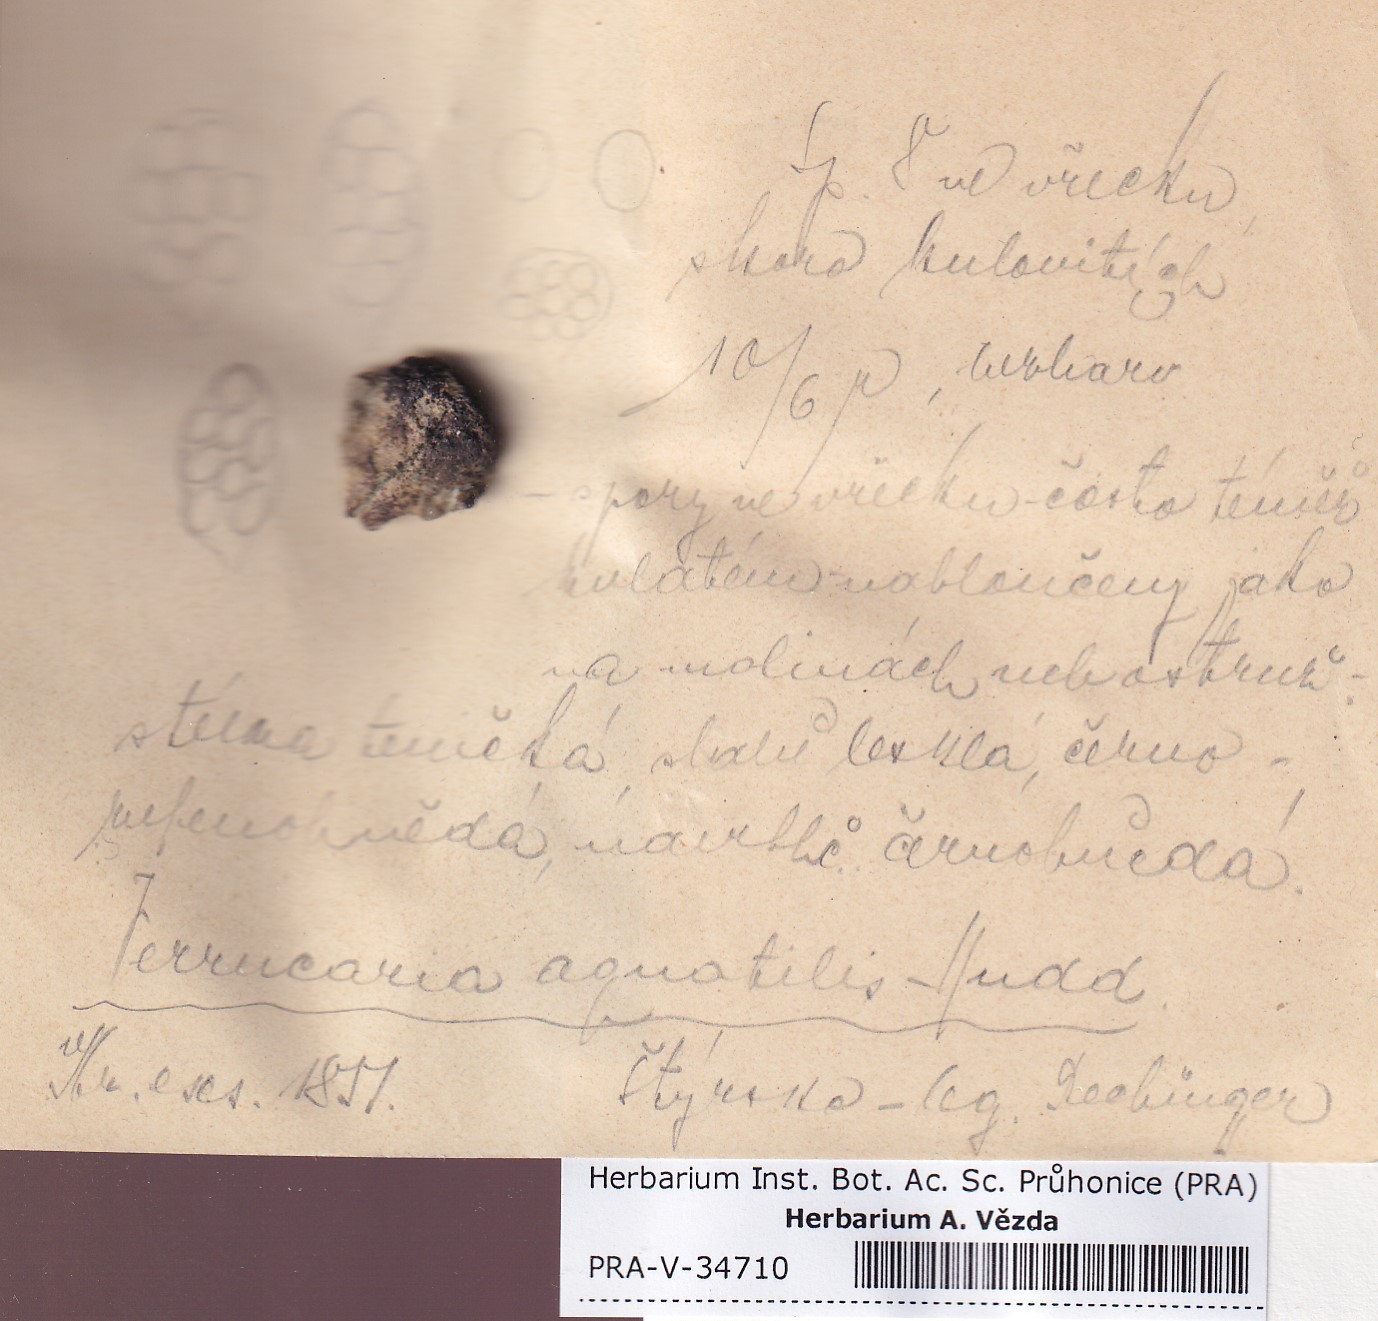 Sp. 8 ve vřecku,
skoro kulovitých
10/6 μ, bezbarv
– spory ve vřecku často téměř
kulatém nabloučeny jako
na malinách neb ostruž-
stélka teničká, slabě lesklá, černo-
zelenohnědá, navrchč. černohnědá.
Verrucaria aquatilis Mudd
Kr. exs. 1851. Štýrsko – leg. Rechinger
Herbarium Inst. Bot. Ac. Sc. Průhonice (PRA)
Herbarium A. Vězda
PRA-V-34710